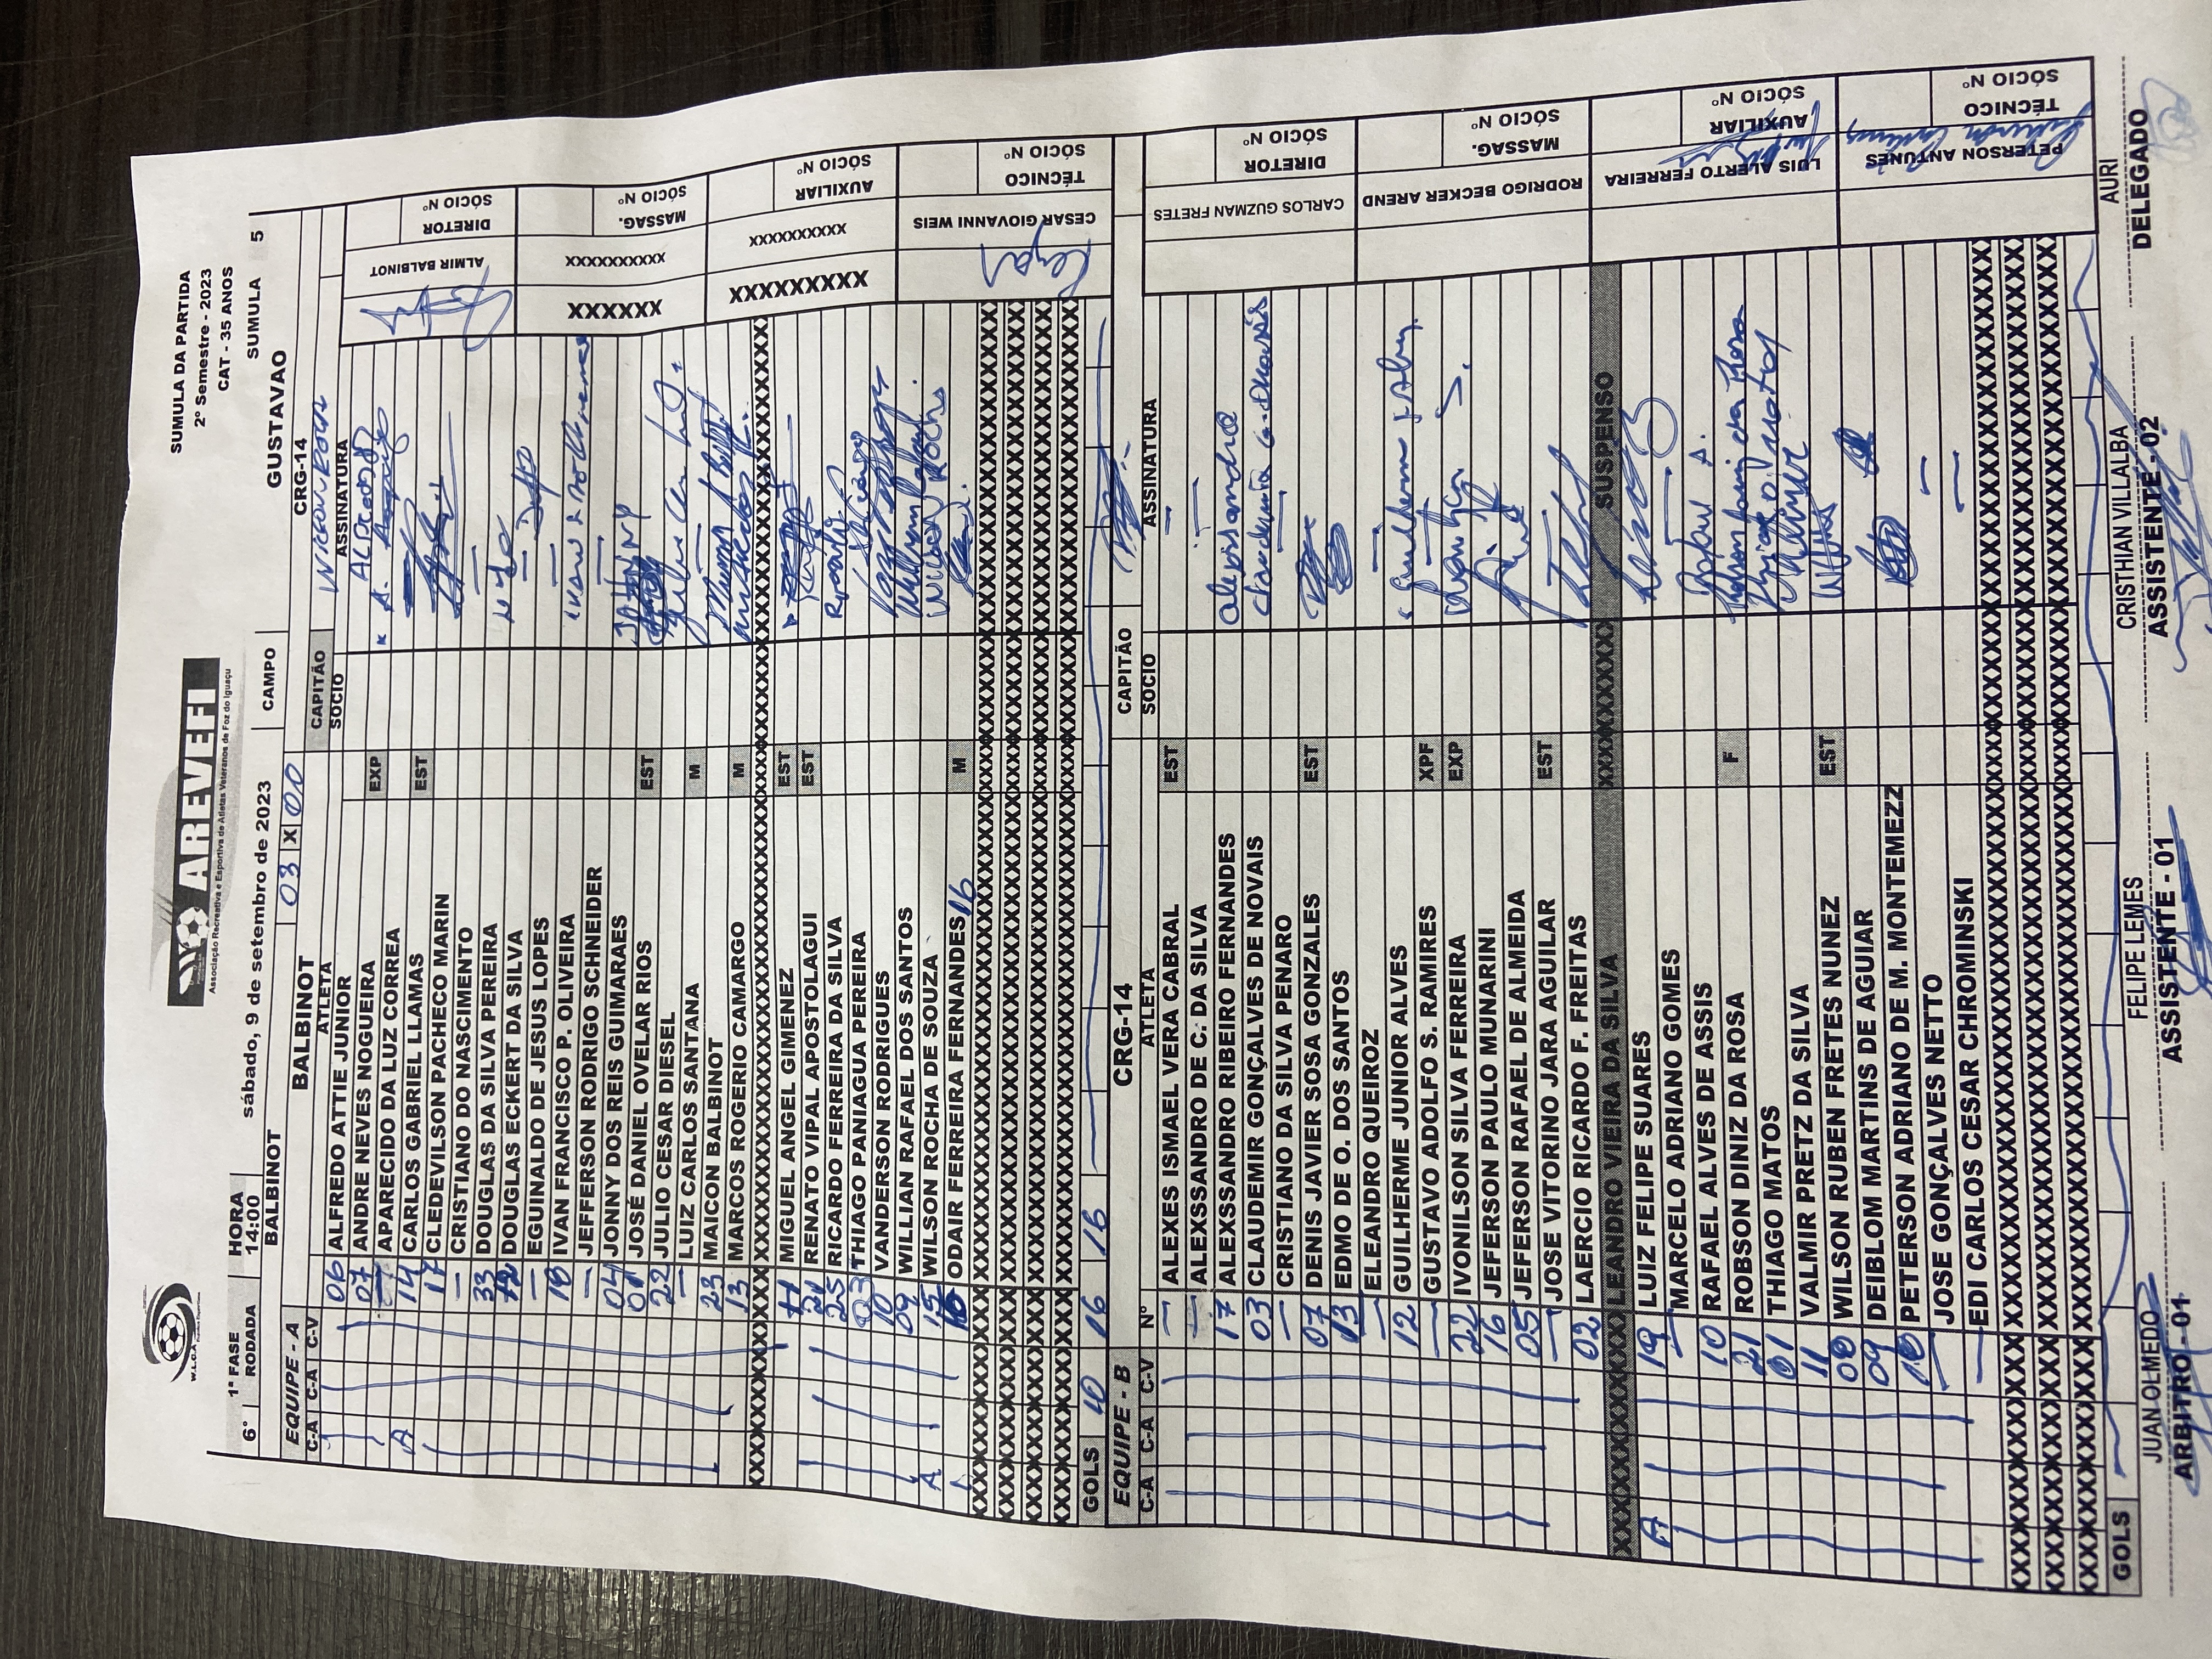 W.L.C.A
AREVEFI
Associação Recreativa e Esportiva de Atletas Veteranos de Foz do Iguaçu
SUMULA DA PARTIDA
2º Semestre - 2023
CAT - 35 ANOS
1ª FASE HORA
6° RODADA 14:00 sábado, 9 de setembro de 2023 CAMPO GUSTAVAO SUMULA 5
BALBINOT 03 X 00 CRG-14
EQUIPE - A BALBINOT CAPITÃO
C-A C-A C-V ATLETA SÓCIO ASSINATURA
06 ALFREDO ATTIE JUNIOR
07 ANDRE NEVES NOGUEIRA EXP
APARECIDO DA LUZ CORREA
A 14 CARLOS GABRIEL LLAMAS EST
17 CLEDEVILSON PACHECO MARIN
— CRISTIANO DO NASCIMENTO
33 DOUGLAS DA SILVA PEREIRA
DOUGLAS ECKERT DA SILVA
— EGUINALDO DE JESUS LOPES
18 IVAN FRANCISCO P. OLIVEIRA
— JEFFERSON RODRIGO SCHNEIDER
04 JONNY DOS REIS GUIMARAES
01 JOSÉ DANIEL OVELAR RIOS EST
22 JULIO CESAR DIESEL
— LUIZ CARLOS SANTANA M
23 MAICON BALBINOT
13 MARCOS ROGERIO CAMARGO M
11 MIGUEL ANGEL GIMENEZ EST
21 RENATO VIPAL APOSTOLAGUI EST
25 RICARDO FERREIRA DA SILVA
03 THIAGO PANIAGUA PEREIRA
10 VANDERSON RODRIGUES
09 WILLIAN RAFAEL DOS SANTOS
A 15 WILSON ROCHA DE SOUZA
16 ODAIR FERREIRA FERNANDES 16 M
GOLS 10 16 16
ALMIR BALBINOT
DIRETOR
SÓCIO Nº
XXXXXX
XXXXXXXXXX
MASSAG.
SÓCIO Nº
XXXXXXXXX
XXXXXXXXXX
AUXILIAR
SÓCIO Nº
CESAR GIOVANNI WEIS
TÉCNICO
SÓCIO Nº
EQUIPE - B CRG-14 CAPITÃO
C-A C-A C-V Nº ATLETA SOCIO ASSINATURA
— ALEXES ISMAEL VERA CABRAL EST —
— ALEXSSANDRO DE C. DA SILVA —
17 ALEXSSANDRO RIBEIRO FERNANDES
03 CLAUDEMIR GONÇALVES DE NOVAIS
— CRISTIANO DA SILVA PENARO —
07 DENIS JAVIER SOSA GONZALES EST
13 EDMO DE O. DOS SANTOS
— ELEANDRO QUEIROZ —
12 GUILHERME JUNIOR ALVES
— GUSTAVO ADOLFO S. RAMIRES XPF —
22 IVONILSON SILVA FERREIRA EXP
16 JEFERSON PAULO MUNARINI
05 JEFFERSON RAFAEL DE ALMEIDA
— JOSE VITORINO JARA AGUILAR EST —
02 LAERCIO RICARDO F. FREITAS
LEANDRO VIEIRA DA SILVA SUSPENSO
A 19 LUIZ FELIPE SUARES
— MARCELO ADRIANO GOMES —
10 RAFAEL ALVES DE ASSIS
21 ROBSON DINIZ DA ROSA F
01 THIAGO MATOS
11 VALMIR PRETZ DA SILVA
00 WILSON RUBEN FRETES NUNEZ EST
09 DEIBLOM MARTINS DE AGUIAR
18 PETERSON ADRIANO DE M. MONTEMEZZ
JOSE GONÇALVES NETTO —
— EDI CARLOS CESAR CHROMINSKI —
GOLS
CARLOS GUZMAN FRETES
DIRETOR
SÓCIO Nº
RODRIGO BECKER AREND
MASSAG.
SÓCIO Nº
LUIS ALERTO FERREIRA
AUXILIAR
SÓCIO Nº
PETERSON ANTUNES
TÉCNICO
SÓCIO Nº
JUAN OLMEDO FELIPE LEMES CRISTHIAN VILLALBA AURI
ARBITRO - 01 ASSISTENTE - 01 ASSISTENTE - 02 DELEGADO